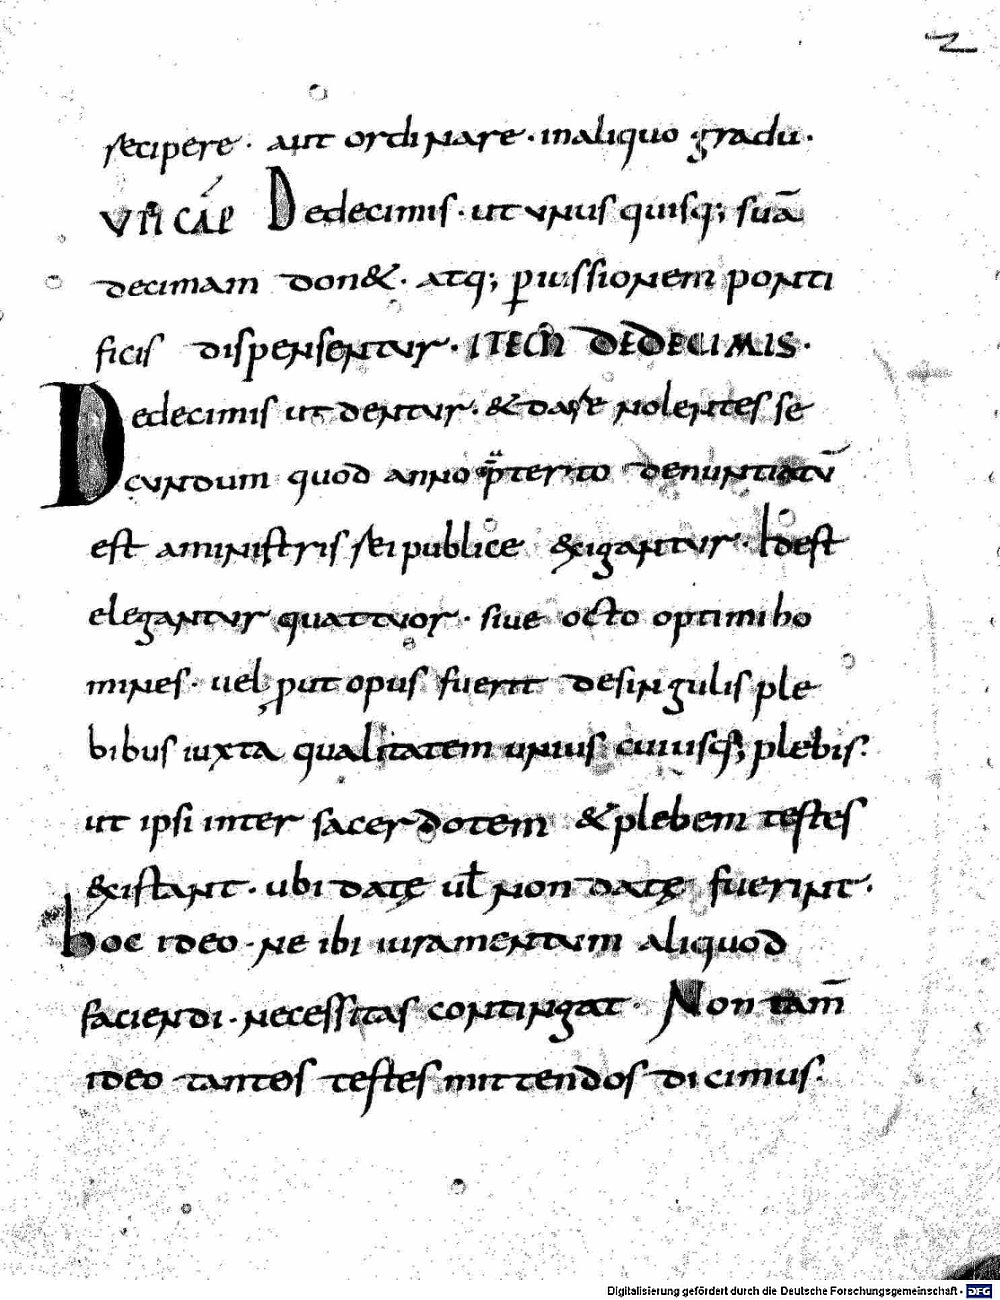 2
recipere · aut ordinare · in aliquo gradu ·
VII CAP Dedecimis · ut unusquisq; suā
decimam don& · atq; p iussionem ponti
ficis dispensentur · ITEM DEDECIMIS ·
Dedecimis ut dentur · & dare nolentes se
cundum quod anno pterito denuntiatū
est a ministris rei publice exigantur · Idest
elegantur quattuor · siue octo optimi ho
mines · uel put opus fuerit desingulis ple
bibus iuxta qualitatem unius cuiusq; plebis ·
ut ipsi inter sacerdotem & plebem testes
&istant · ubi datę ul non datę fuerint ·
hoc ideo · ne ibi iuramentum aliquod
faciendi · necessitas contingat · Non tam̄
ideo tantos testes mittendos dicimus ·
Digitalisierung gefördert durch die Deutsche Forschungsgemeinschaft - DFG